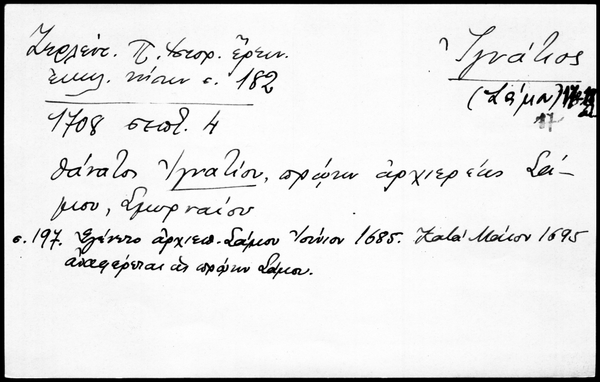 Ζερλέντ. Π. Ἱστορ. ἔρευν.
ἐκκλ. νήσων σ. 182
Ἰγνάτιος
(Σάμου)
17
1708 σεπτ. 4
θάνατος Ἰγνατίου, πρώην ἀρχιερέως Σά-
μου, Σμυρναίου
σ. 197. Ἐγένετο ἀρχιεπ. Σάμου Ἰούνιον 1685. Κατά Μάιον 1695
ἀναφέρεται ὡς πρώην Σάμου.